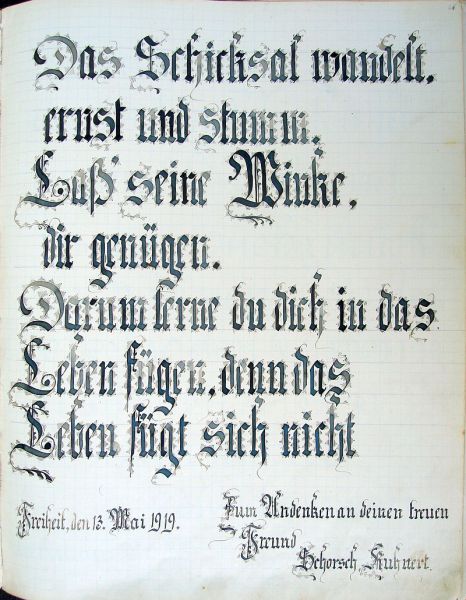 Das Schicksal wandelt.
ernst und stumm.
Laß' seine Winke,
dir genügen.
Darum lerne du dich in das
Leben fügen, denn das
Leben fügt sich nicht
Freiheit, den 13. Mai 1919.
Zum Andenken an deinen treuen
Freund
Schorsch Kuhnert.